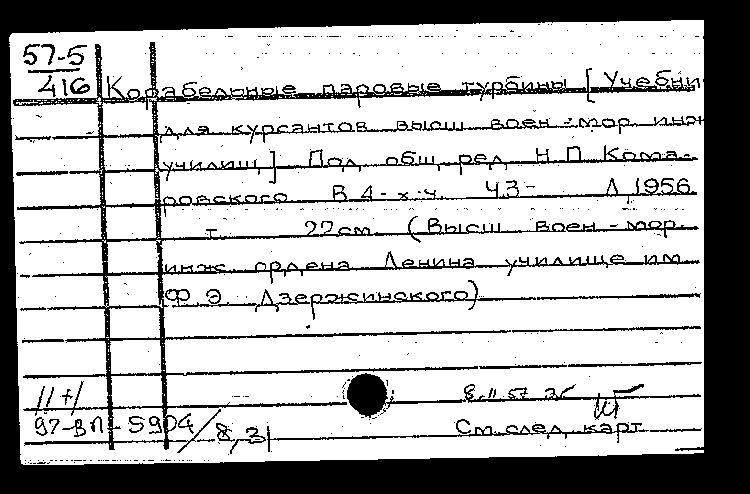 57-5
416 Корабельные паровые турбины [Учебни
для курсантов высш воен-мор инж
училищ] Под общ ред Н П Кома-
ровского В 4-х ч. Ч3- Л, 1956
т. 22см (Высш воен-мор
инж ордена Ленина училище им
Ф Э Дзержинского)
8.II 57
97-ВП-5904/8,31
См след карт